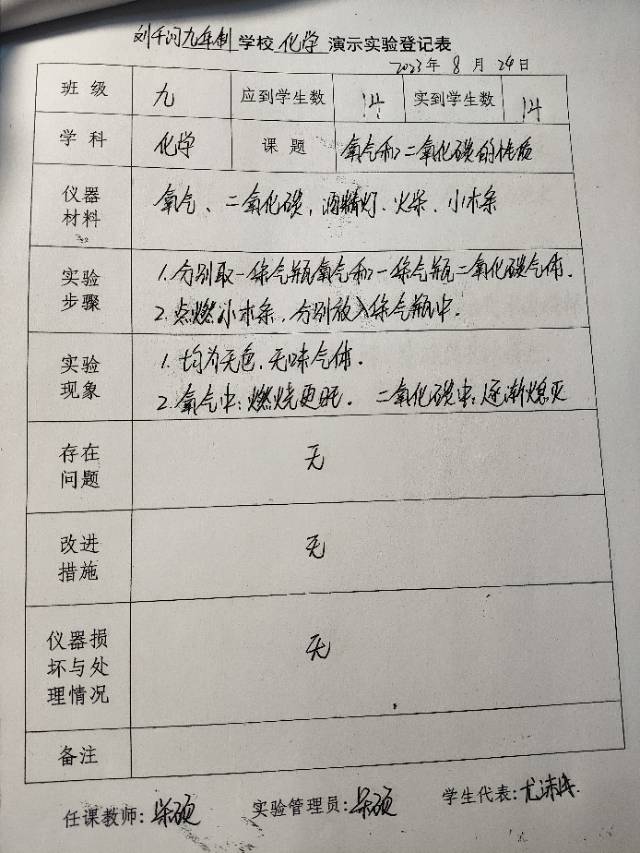 刘千闪九年制学校 化学 演示实验登记表
2023年 8 月 24日
班 级 九 应到学生数 14 实到学生数 14
学 科 化学 课 题 氧气和二氧化碳的性质
仪器
材料
氧气、二氧化碳,酒精灯、火柴、小木条
实验
步骤
1.分别取一集气瓶氧气和一集气瓶二氧化碳气体.
2.点燃小木条,分别放入集气瓶中.
实验
现象
1.均为无色,无味气体.
2.氧气中:燃烧更旺. 二氧化碳中:逐渐熄灭
存在
问题
无
改进
措施
无
仪器损
坏与处
理情况
无
备注
任课教师: 实验管理员: 学生代表: